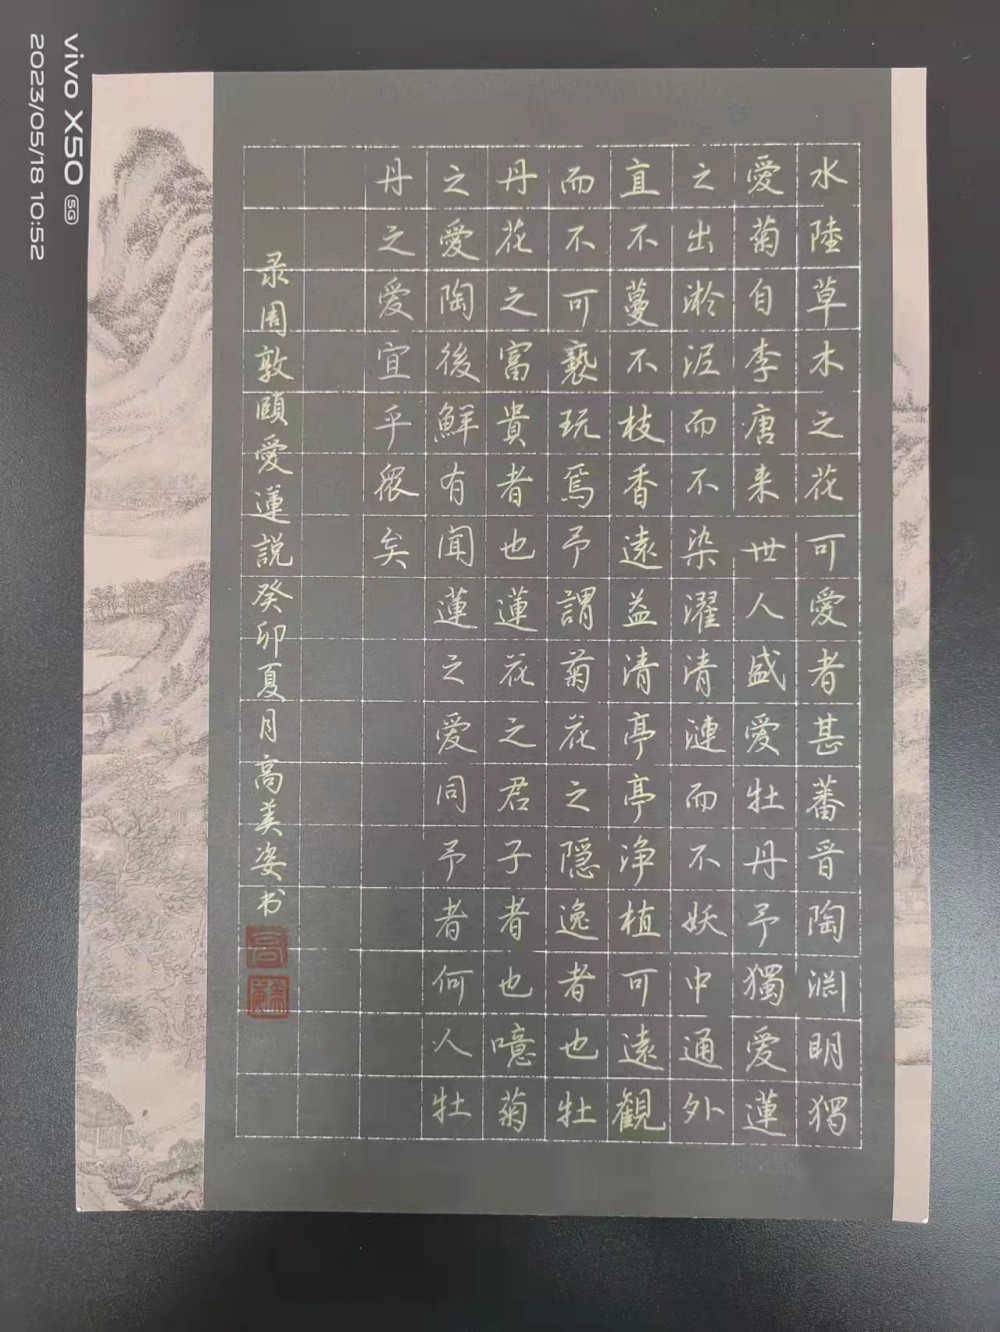 水陸草木之花可愛者甚蕃晋陶淵明獨
愛菊自李唐来世人盛愛牡丹予獨愛蓮
之出淤泥而不染濯清漣而不妖中通外
直不蔓不枝香遠益清亭亭净植可遠観
而不可褻玩焉予謂菊花之隠逸者也牡
丹花之富貴者也蓮花之君子者也噫菊
之愛陶後鮮有闻蓮之愛同予者何人牡
丹之愛宜乎衆矣
录周敦頤愛蓮説癸卯夏月高美姿书
vivo X50 5G
2023/05/18 10:52